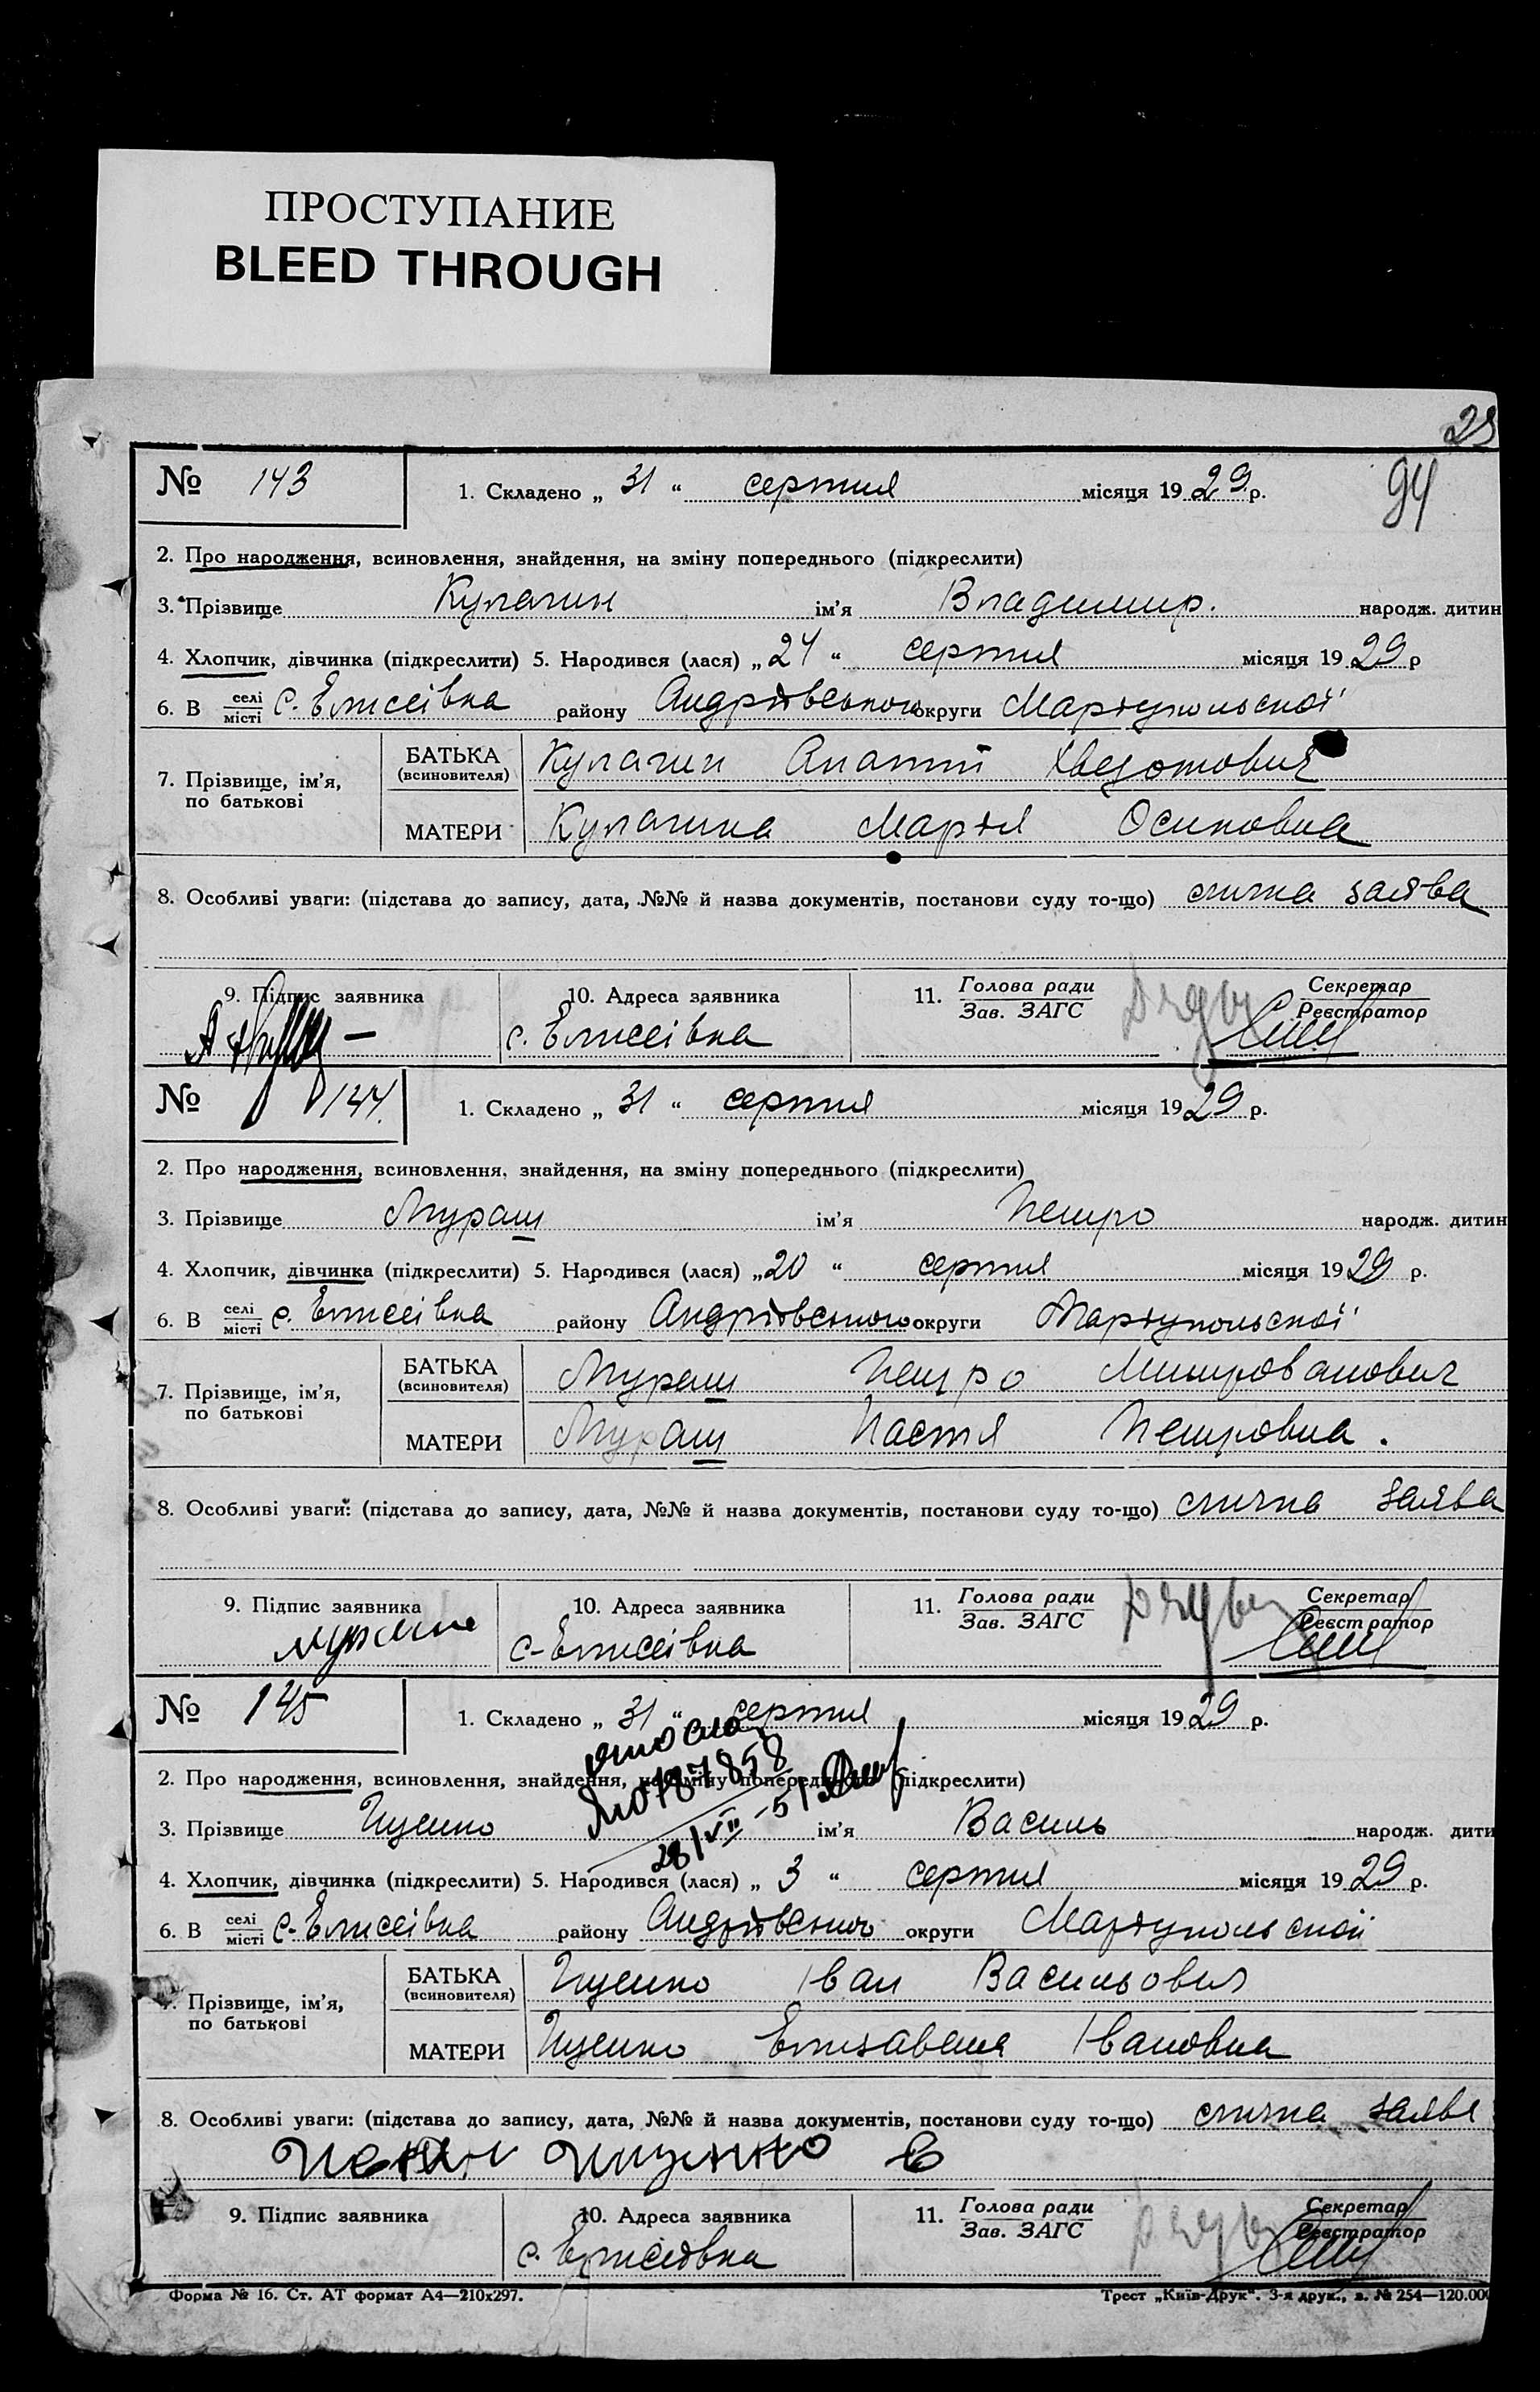 ПРОСТУПАНИЕ
BLEED THROUGH
94
№ 143 1. Складено „ 31 “ серпня місяця 1929 р.
2. Про народження, всиновлення, знайдення, на зміну попереднього (підкреслити)
3. Прізвище Кулагин ім’я Владимир. народж. дитин
4. Хлопчик, дівчинка (підкреслити) 5. Народився (лася) „ 24 “ серпня місяця 1929 р
6. В селі/місті с. Елисеівка району Андріівського округи Маріупольскої
7. Прізвище, ім’я, по батькові
БАТЬКА (всиновителя) Кулагин Хведотович
МАТЕРИ Кулагина Марія Осиповна
8. Особливі уваги: (підстава до запису, дата, №№ й назва документів, постанови суду то-що) слична заява
9. Підпис заявника 10. Адреса заявника 11. Голова ради/Зав. ЗАГС Секретар/Реєстратор
с. Елисеівка
№ 144. 1. Складено „ 31 “ серпня місяця 1929 р.
2. Про народження, всиновлення, знайдення, на зміну попереднього (підкреслити)
3. Прізвище Мураш ім’я Петро народж. дитин
4. Хлопчик, дівчинка (підкреслити) 5. Народився (лася) „ 20 “ серпня місяця 1929 р.
6. В селі/місті с. Елисеівка району Андріівського округи Маріупольскої
7. Прізвище, ім’я, по батькові
БАТЬКА (всиновителя) Мураш Петро Митрованович
МАТЕРИ Мураш Настя Петровна.
8. Особливі уваги: (підстава до запису, дата, №№ й назва документів, постанови суду то-що) слична заява
9. Підпис заявника 10. Адреса заявника 11. Голова ради/Зав. ЗАГС Секретар/Реєстратор
с-Елисеівка
№ 145 1. Складено „ 31 “ серпня місяця 1929 р.
2. Про народження, всиновлення, знайдення, на зміну попереднього (підкреслити)
187858
28/VII-51
3. Прізвище Ищенко ім’я Василь народж. дити
4. Хлопчик, дівчинка (підкреслити) 5. Народився (лася) „ 3 “ серпня місяця 1929 р.
6. В селі/місті с-Елисеівка району Андріівсьного округи Маріупольскої
7. Прізвище, ім’я, по батькові
БАТЬКА (всиновителя) Ищенко Іван Васильович
МАТЕРИ Ищенко Елизавета Івановна
8. Особливі уваги: (підстава до запису, дата, №№ й назва документів, постанови суду то-що) слична заява
9. Підпис заявника 10. Адреса заявника 11. Голова ради/Зав. ЗАГС Секретар/Реєстратор
с. Елисеівка
Форма № 16. Ст. АТ формат А4—210х297. Трест „Київ-Друк“. 3-я друк., з. № 254—120.000